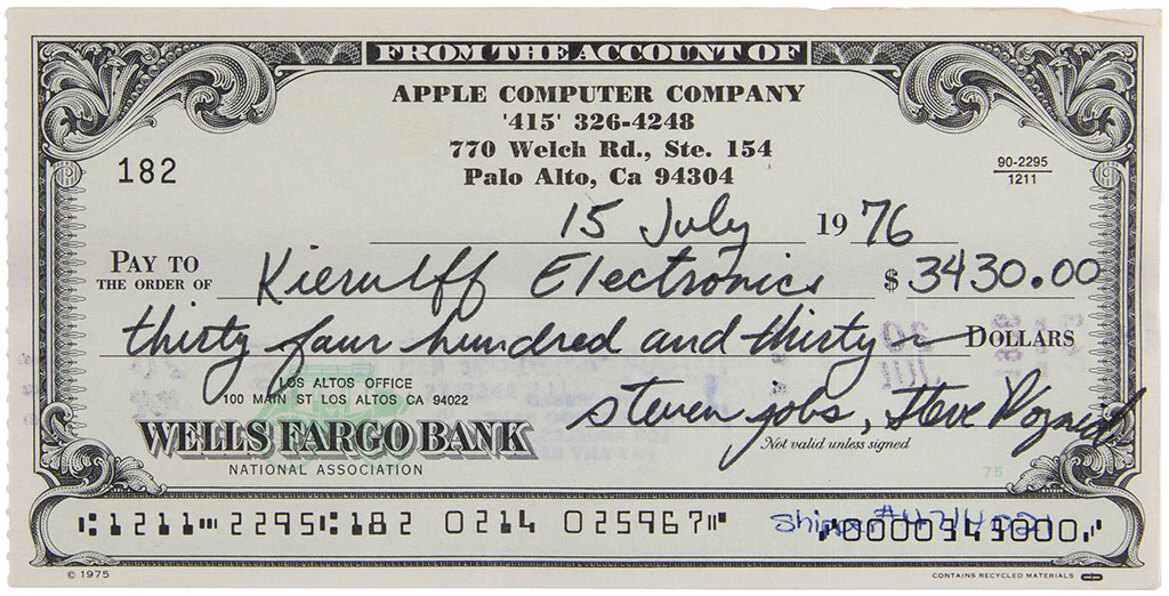 FROM THE ACCOUNT OF
APPLE COMPUTER COMPANY
'415' 326-4248
770 Welch Rd., Ste. 154
Palo Alto, Ca 94304
182
90-2295
1211
15 July 1976
PAY TO THE ORDER OF Kierulff Electronics $ 3430.00
thirty four hundred and thirty DOLLARS
LOS ALTOS OFFICE
100 MAIN ST LOS ALTOS CA 94022
WELLS FARGO BANK
NATIONAL ASSOCIATION
steven jobs, Steve Wozniak
Not valid unless signed
75
1211 2295 182 0214 025967 0000343000
© 1975
CONTAINS RECYCLED MATERIALS